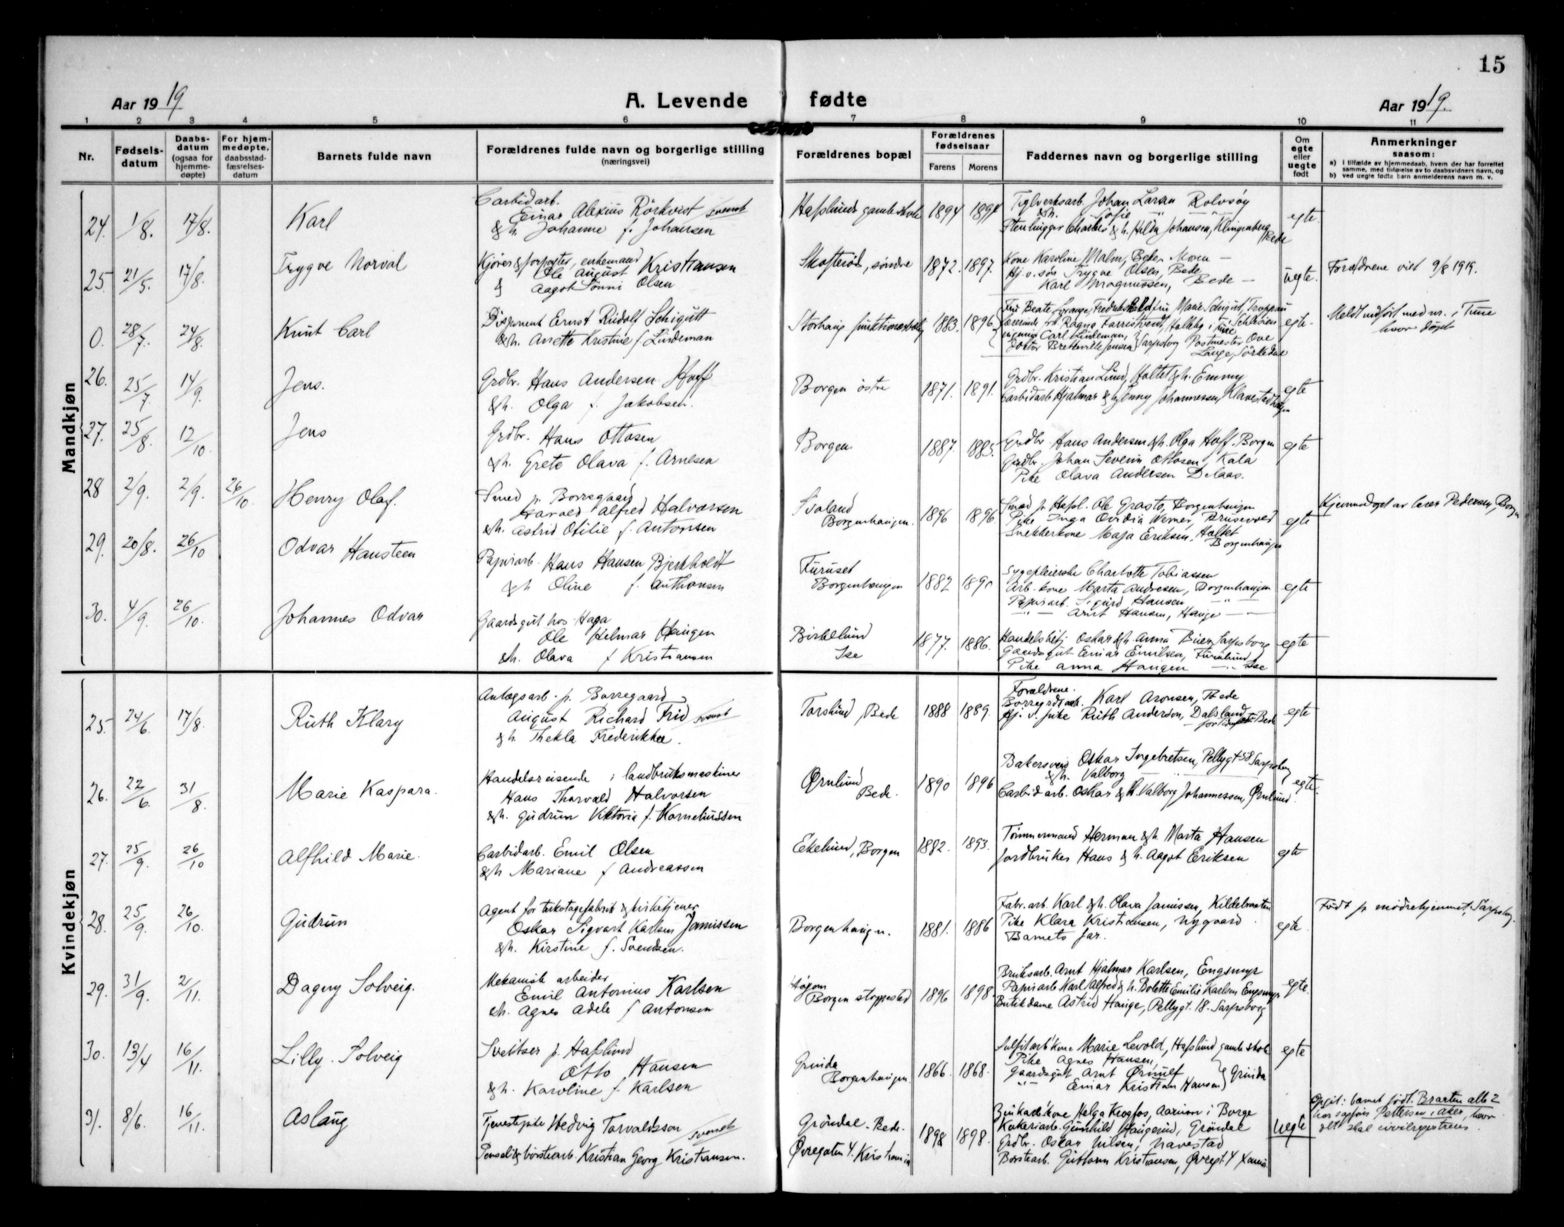 15
Aar 1919
A. Levende fødte
Aar 1919.
1 2 3 4 5 6 7 8 9 10 11
Nr.
Fødselsdatum
Daabsdatum (ogsaa for hjemmedøpte)
For hjemmedøpte, daabsstadfæstelsesdatum
Barnets fulde navn
Forældrenes fulde navn og borgerlige stilling (næringsvei)
Forældrenes bopæl
Forældrenes fødselsaar
Farens Morens
Faddernes navn og borgerlige stilling
Om egte eller uegte født
Anmerkninger saasom:
a) i tilfælde av hjemmedaab, hvem der har forrettet samme, med tilføielse av to daabsvidners navn, og
b) ved uegte fødte barn anmelderens navn m. v.
Mandkjøn
24. 1/8. 17/8. Karl
Carbidarb.
Einar Alexius Rörkvist svensk
&h. Johanne f. Johansen
Hafslund gamle skole 1894 1894
Tglverksarb. Johan Larsen Rolvsøy
Stenhugger Charles & h. Hilda Johansen, Klingenberg Bede
egte
25. 21/5. 17/8. Trygve Norval
Kjører & forpagter, enkemand
Ole August Kristiansen
& Aagot Sønni Olsen
Skofterød, søndre 1872. 1897.
Kone Karoline Malm, Bede. Moren —
Gj. v. søn Trygve Olsen, Bede
Karl Magnussen, Bede —
uegte.
Forældrene viet 9/8 1919.
0. 28/7. 24/8. Knut Carl
Disponent Ernst Rudolf Schigutt
&h. Anette Kristine f. Lindeman
Storhaug funktionærbolig 1883. 1896
egte.
Meldt utført med nr. i Tune hvor døpt
26. 25/7 14/9. Jens.
Grdbr. Hans Andersen Hoff
&h. Olga f. Jakobsen.
Borgen østre 1871. 1891.
Grdbr. Kristian Lund, Holtet & h. Emmy
Carbidarb. Hjalmar & h. Jenny Johannessen,
egte
27. 25/8. 12/10 Jens
Grdbr. Hans Ottosen
&h. Grete Olava f. Arnesen
Borgen. 1887. 1885.
Grdbr. Hans Andersen &h. Olga Hoff, Borgen
Grdbr. Johan Severin Ottosen, Kala
Pike Olava Andersen
egte
28 2/9. 2/9. 26/10. Henry Olaf.
Smed p. Borregaard
Harald Alfred Halvorsen
&h. Astrid Otilie f. Antonsen
Borgenhaugen. 1896 1896
Smed p. Hafsl. Ole Grasto, Borgenhaugen
Pike Inga Ovidia Werner,
Snekkerkone Maja Eriksen, Holtet Borgenhaugen
egte
Hjemmedøpt av lærer Pedersen, Borgen
29. 20/8. 26/10 Odvar Hansteen
Papirarb. Hans Hansen Bjerkholdt
&h. Oline f. Anthonsen
Furuset Borgenhaugen 1882 1890
Sygepleierske Charlotte Tobiassen
Arb. kone Marta Andresen, Borgenhaugen
Papirarb. Sigurd Hansen —"—
—"— Arnt Hansen, Hauge —"—
egte
30. 4/9. 26/10. Johannes Odvar
Gaardsgut hos Haga
Ole Helmar Haugen
&h. Olava f. Kristiansen
Birkelund Ise 1877. 1886.
Handelsbetj. Oskar & h. Anna Buer, Sarpsborg
Gaardsgut Einar Emilsen, Furulund
Pike Anna Haugen —"— Ise
egte
Kvindekjøn
25. 24/6. 17/8. Ruth Klary
Anlægsarb. p. Borregaard
August Richard Frid svensk
&h. Thekla Frederikke.
Torslund, Bede 1888 1889.
Forældrene.
Borregaardarb. Karl Aronsen, Bede
Gj. v. pike Ruth Anderson, Dalsland
egte
26. 22/6. 31/8. Marie Kaspara.
Handelsreisende i landbruksmaskiner
Hans Thorvald Halvorsen
&h. Gudrun Viktoria f. Korneliussen
Ørnlund Bede. 1890 1896
Bakersvend Oskar Ingebretsen, Pellygt 58 Sarpsborg
&h. Valborg —
Carbidarb. Oskar & h. Valborg Johannessen, Ørnlund
egte.
27. 25/9. 26/10 Alfhild Marie.
Carbidarb. Emil Olsen
&h. Mariane f. Andreassen
Ekelund, Borgen 1882. 1893.
Tømmermand Herman & h. Marta Hansen
Jordbruker Hans & h. Aagot Eriksen
egte
28. 25/9. 26/10. Gudrun
Agent for trikotagefabrik & kirketjener
Oskar Sigvart Karlsen Jamissen
&h. Kirstine f. Svendsen.
Borgenhaugen. 1881. 1886
Fabr. arb. Karl & h. Olava Jamissen,
Pike Klara Kristiansen, Nygaard
Barnets far.
egte.
Født p. mødrehjemmet, Sarpsborg.
29. 31/9. 2/11. Dagny Solveig.
Mekanisk arbeider
Emil Antonius Karlsen
&h. Agnes Adele f. Antonsen
Borgen stoppested 1896 1898.
Bruksarb. Arnt Hjalmar Karlsen, Engsmyr
Papirarb. Karl Alfred & h. Bolette Emilie Karlsen Engsmyr
Butikdame Astrid Hauge, Pellygt. 18. Sarpsborg
egte
30. 13/4 16/11. Lilly Solveig
Sveitser p. Hafslund
Otto Hansen
&h. Karoline f. Karlsen
Grinda Borgenhaugen 1866. 1868.
Sulfitarb. kone Marie Levold, Hafslund gamle skole
Pike Agnes Hansen,
Gaardsgut Arnt Ørnulf
—"— Einar Kristian Hansen } Grinda
egte
31. 8/6. 16/11. Aslaug
Tjenestepike Hedvig Torvaldsson svensk
Pensel & børstearb. Kristian Georg Kristiansen.
Grøndal. Bede.
Øvregaten 4. Kristiania
1898 1898.
Helga Krogfos, Aarum i Borge
Gunhild Haugsrud, Grøndal
Grdbr. Oskar Nilsen, Navestad
Børstearb. Guttorm Kristiansen, Øvregt 4 Xania
uegte